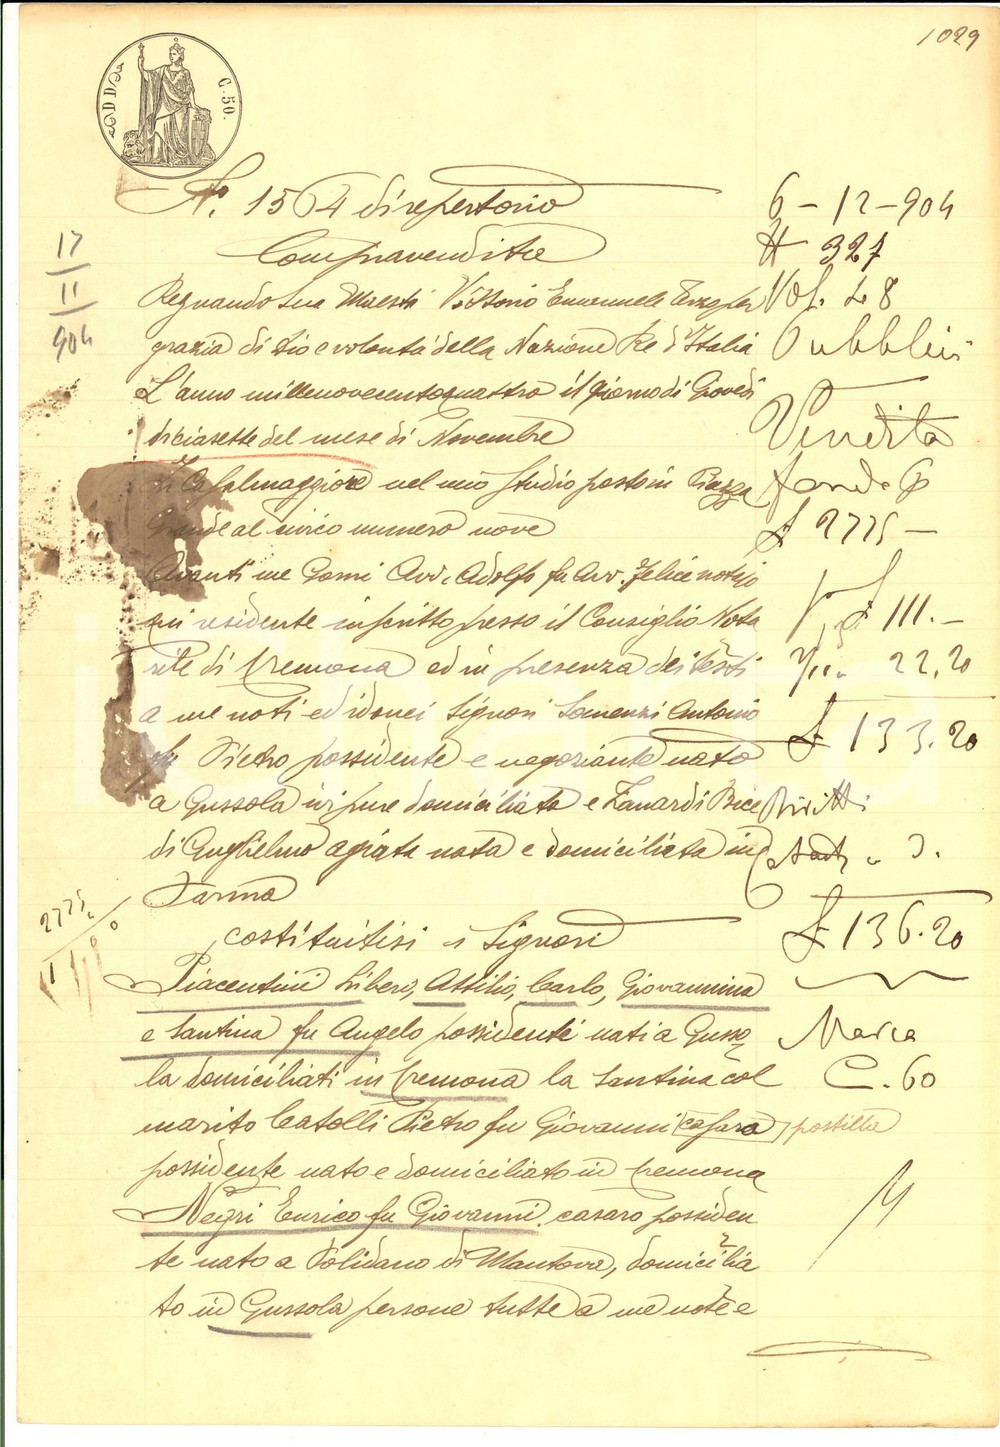 1029
C. 50.
N.º 1564 di repertorio
Compravendita
Regnando Sua Maestà Vittorio Emanuele Terzo per
grazia di Dio e volontà della Nazione Re d'Italia
L'anno millenovecentoquattro il giorno di Giovedì
diciasette del mese di Novembre
In Casalmaggiore nel mio studio posto in Piazza
Grande al civico numero nove
Avanti me Gorni Avv. Adolfo fu Avv. Felice notajo
qui residente inscritto presso il Consiglio Nota
rile di Cremona ed in presenza dei testi
a me noti ed idonei Signori Somenzi Antonio
fu Pietro possidente e negoziante nato
a Gussola ivi pure domiciliato e Zanardi Bice
di Guglielmo agiata nata e domiciliata in
Parma
costituitisi i Signori
Piacentini Libero, Attilio, Carlo, Giovannina
e Santina fu Angelo possidenti nati a Gusso
la domiciliati in Cremona la Santina col
marito Catolli Pietro fu Giovanni (casara) postilla
possidente nato e domiciliato in Cremona
Negri Enrico fu Giovanni casaro possiden
te nato a Polidano di Mantova, domicilia
to in Gussola persone tutte a me note e
17
11
904
2775
6 - 12 - 904
N 327
Vol. 48
Pubblici
Vendita
£ 2775 -
£ 111. -
22,20
£ 133.20
Diritti
3.
£ 136.20
Marca
C. 60